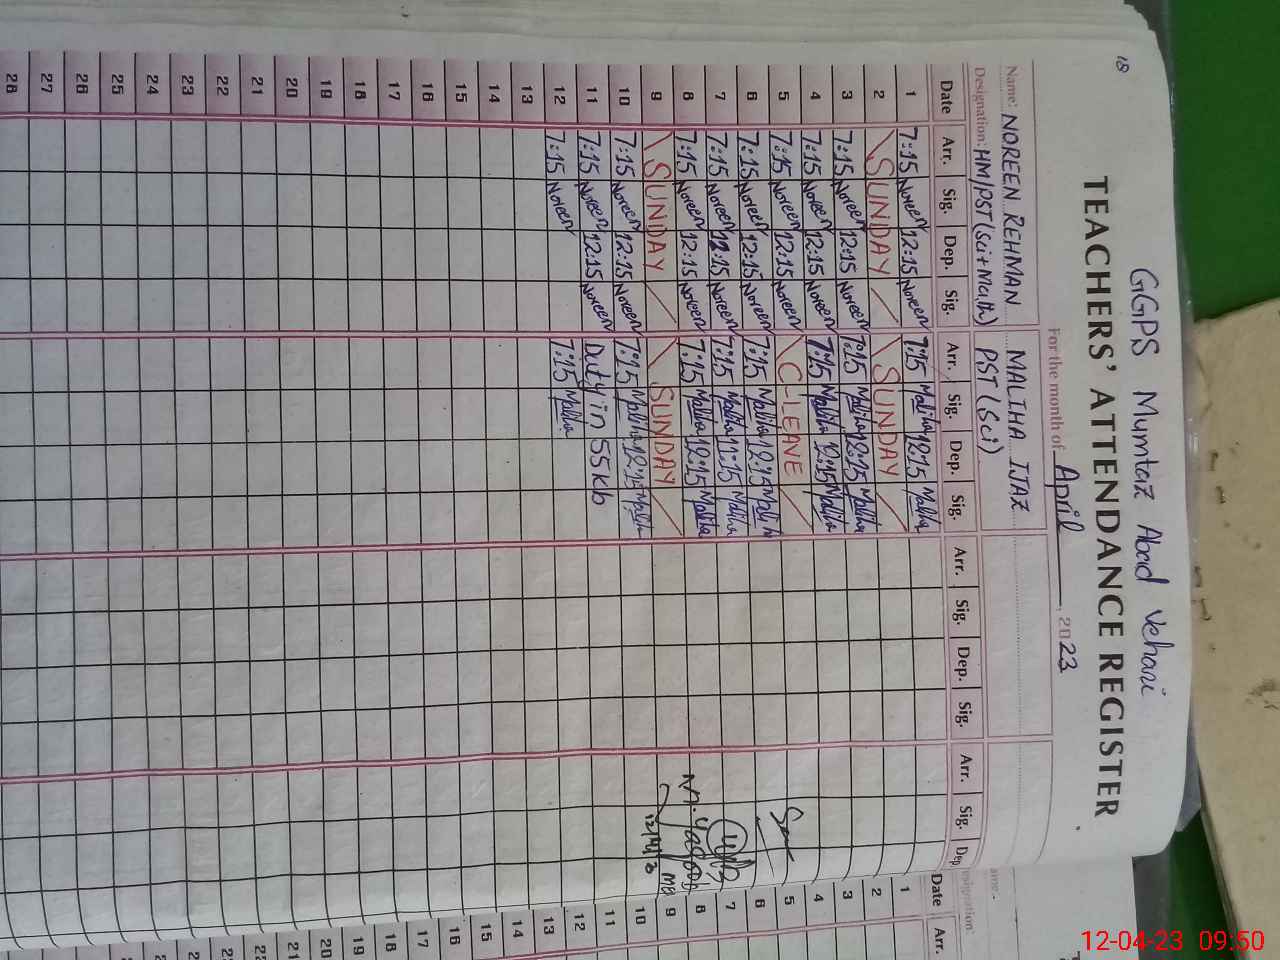 18
GGPS Mumtaz Abad Vehari
TEACHERS' ATTENDANCE REGISTER
For the month of April, 2023
Name: NOREEN REHMAN MALIHA IJAZ
Designation: HM/PST (sci+Math) PST (Sci)
Date Arr. Sig. Dep. Sig. Arr. Sig. Dep. Sig. Arr. Sig. Dep. Sig. Arr. Sig. Dep
1 7:15 Noreen 12:15 Noreen 7:15 Maliha 12:15 Maliha
2 SUNDAY SUNDAY
3 7:15 Noreen 12:15 Noreen 7:15 Maliha 12:15 Maliha
4 7:15 Noreen 12:15 Noreen 7:15 Maliha 12:15 Maliha
5 7:15 Noreen 12:15 Noreen C-LEAVE
6 7:15 Noreen 12:15 Noreen 7:15 Maliha 12:15 Maliha
7 7:15 Noreen 12:15 Noreen 7:15 Maliha 11:15 Maliha
8 7:15 Noreen 12:15 Noreen 7:15 Maliha 12:15 Maliha
9 SUNDAY SUNDAY
10 7:15 Noreen 12:15 Noreen 7:15 Maliha 12:15 Maliha
11 7:15 Noreen 12:15 Noreen Duty in 55kb
12 7:15 Noreen 7:15 Maliha
13
14
15
16
17
18
19
20
21
22
23
24
25
26
27
28
Date Arr.
1
2
3
4
5
6
7
8
9
10
11
12
13
14
15
16
17
18
19
20
21
22
23
24
25
12-04-23 09:50